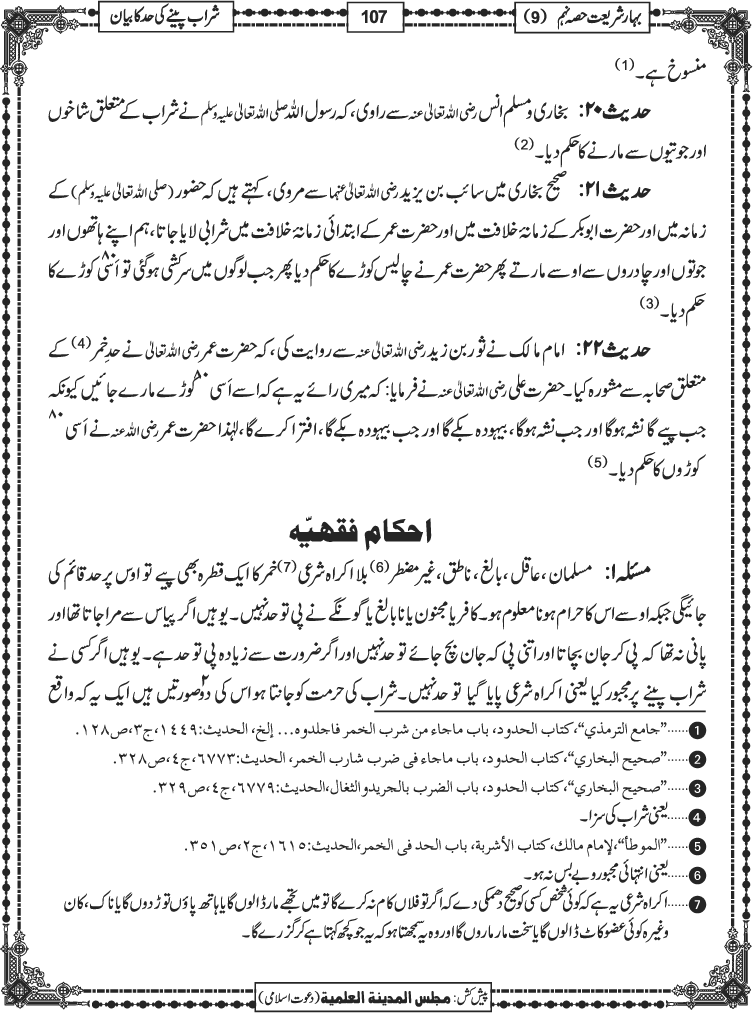 بہار شریعت حصہ نہم (9)
107
شراب پینے کی حد کا بیان
منسوخ ہے۔(1)
حدیث ۲۰: بخاری و مسلم انس رضی اللہ تعالیٰ عنہ سے راوی، کہ رسول اللہ صلی اللہ تعالیٰ علیہ وسلم نے شراب کے متعلق شاخوں
اور جوتیوں سے مارنے کا حکم دیا۔(2)
حدیث ۲۱: صحیح بخاری میں سائب بن یزید رضی اللہ تعالیٰ عنہما سے مروی، کہتے ہیں کہ حضور (صلی اللہ تعالیٰ علیہ وسلم) کے
زمانہ میں اور حضرت ابوبکر کے زمانۂ خلافت میں اور حضرت عمر کے ابتدائی زمانۂ خلافت میں شرابی لایا جاتا، ہم اپنے ہاتھوں اور
جوتوں اور چادروں سے اوسے مارتے پھر حضرت عمر نے چالیس کوڑے کا حکم دیا پھر جب لوگوں میں سرکشی ہوگئی تو اَسّی ۸۰ کوڑے کا
حکم دیا۔(3)
حدیث ۲۲: امام مالک نے ثور بن زید رضی اللہ تعالیٰ عنہ سے روایت کی، کہ حضرت عمر رضی اللہ تعالیٰ نے حدِ خمر(4) کے
متعلق صحابہ سے مشورہ کیا۔ حضرت علی رضی اللہ تعالیٰ عنہ نے فرمایا: کہ میری رائے یہ ہے کہ اسے اَسی ۸۰ کوڑے مارے جائیں کیونکہ
جب پیے گا نشہ ہوگا اور جب نشہ ہوگا، بیہودہ بکے گا اور جب بیہودہ بکے گا، افترا کرے گا، لہٰذا حضرت عمر رضی اللہ عنہ نے اَسی ۸۰
کوڑوں کا حکم دیا۔(5)
احکام فقھیّہ
مسئلہ ۱: مسلمان، عاقل، بالغ، ناطق، غیر مضطر(6) بلا اکراہِ شرعی(7) خمر کا ایک قطرہ بھی پیے تو اوس پر حد قائم کی
جائیگی جبکہ اوسے اس کا حرام ہونا معلوم ہو۔ کافر یا مجنون یا نابالغ یا گونگے نے پی تو حد نہیں۔ یوہیں اگر پیاس سے مرا جاتا تھا اور
پانی نہ تھا کہ پی کر جان بچاتا اور اتنی پی کہ جان بچ جائے تو حد نہیں اور اگر ضرورت سے زیادہ پی تو حد ہے۔ یوہیں اگر کسی نے
شراب پینے پر مجبور کیا یعنی اکراہ شرعی پایا گیا تو حد نہیں۔ شراب کی حرمت کو جانتا ہو اس کی دو ۲ صورتیں ہیں ایک یہ کہ واقع
1 ......”جامع الترمذي“،کتاب الحدود، باب ماجاء من شرب الخمر فاجلدوہ... إلخ، الحدیث:۱۴۴۹،ج۳،ص۱۲۸.
2 ......”صحیح البخاري“، کتاب الحدود، باب ماجاء فی ضرب شارب الخمر، الحدیث:۶۷۷۳،ج۴،ص۳۲۸.
3 ......”صحیح البخاري“،کتاب الحدود، باب الضرب بالجرید والنعال،الحدیث:۶۷۷۹،ج۴،ص۳۲۹.
4 ......یعنی شراب کی سزا۔
5 ......”الموطأ“،لإمام مالك،کتاب الأشربة، باب الحد فی الخمر،الحدیث:۱۶۱۵،ج۲،ص۳۵۱.
6 ......یعنی انتہائی مجبور و بے بس نہ ہو۔
7 ......اکراہ شرعی یہ ہے کہ کوئی شخص کسی کو صحیح دھمکی دے کہ اگر تو فلاں کام نہ کرے گا تو میں تجھے مار ڈالوں گا یا ہاتھ پاؤں توڑ دوں گا یا ناک، کان
وغیرہ کوئی عضو کاٹ ڈالوں گا یا سخت مار ماروں گا اور وہ یہ سمجھتا ہو کہ یہ جو کچھ کہتا ہے کر گزرے گا۔
پیش کش: مجلس المدینة العلمیة (دعوت اسلامی)